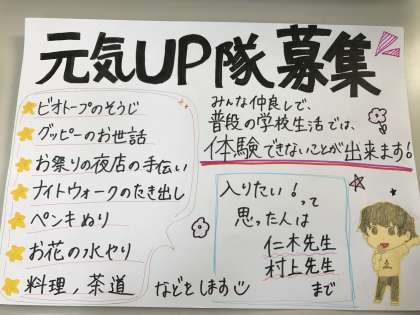 元気UP隊募集
ビオトープのそうじ
グッピーのお世話
お祭りの夜店の手伝い
ナイトウォークのたき出し
ペンキぬり
お花の水やり
料理、茶道
などをします
みんな仲良しで、
普段の学校生活では、
体験できないことが出来ます!
入りたい!
って
思った人は
仁木先生
村上先生
まで